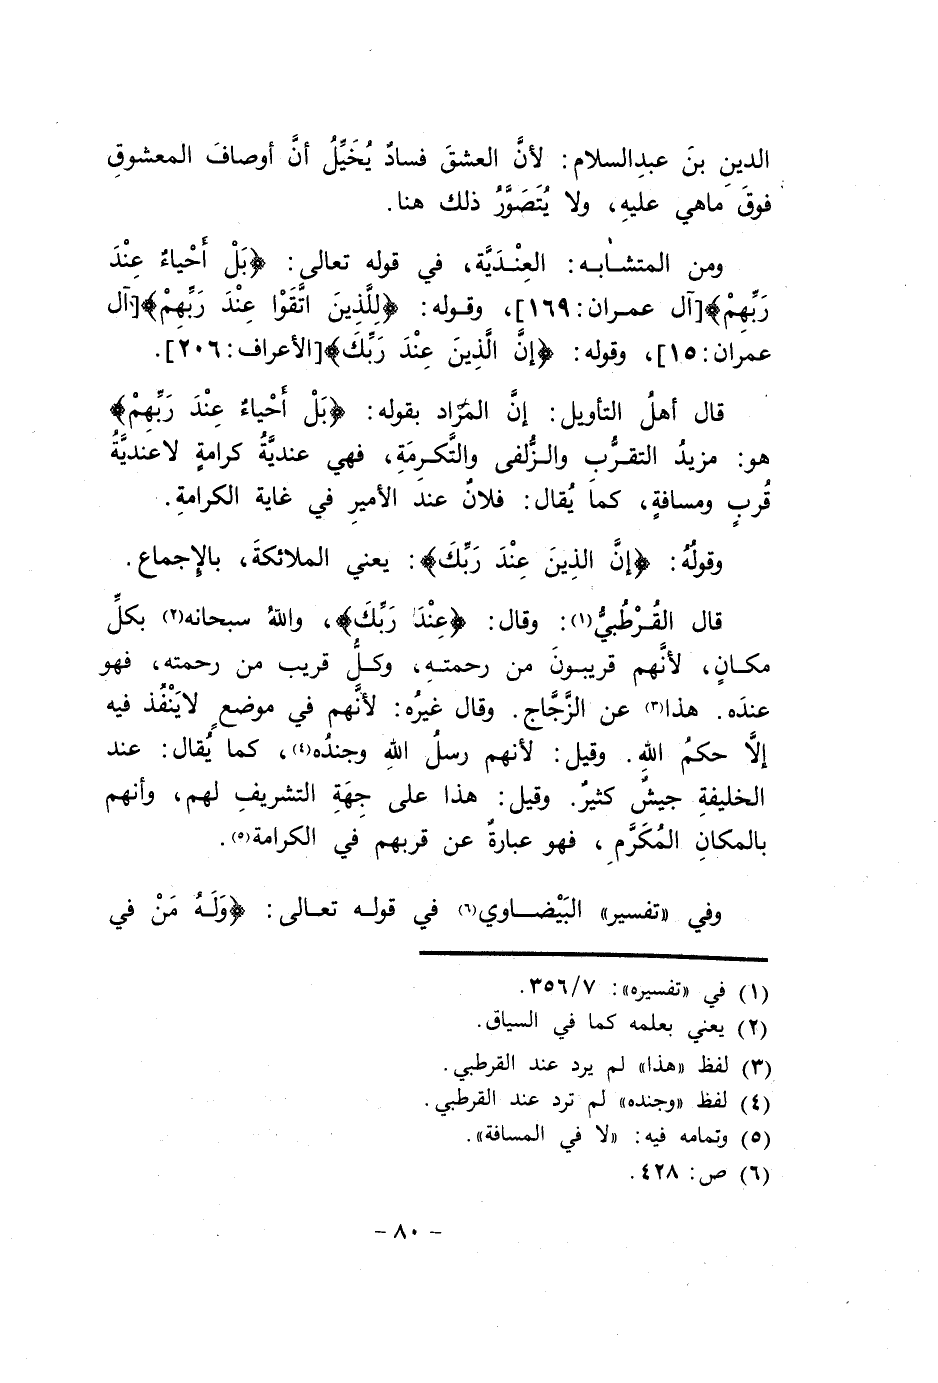 الدينِ بنَ عبدِالسلام: لأنَّ العشقَ فسادٌ يُخَيِّلُ أنَّ أوصافَ المعشوقِ
فوقَ ماهي عليهِ، ولا يُتَصَوَّرُ ذلك هنا.
ومن المتشـابـه: العِنْـدَيَّة، في قوله تعالى: ﴿بَلْ أَحْياءٌ عِنْدَ
رَبِّهِمْ﴾[آل عمـران: ١٦٩]، وقـوله: ﴿لِلَّذِينَ اتَّقَوْا عِنْدَ رَبِّهِمْ﴾[آل
عمران: ١٥]، وقوله: ﴿إنَّ الَّذِينَ عِنْدَ رَبِّكَ﴾[الأعراف: ٢٠٦].
قال أهلُ التأويل: إنَّ المُرَاد بقوله: ﴿بَلْ أَحْياءٌ عِنْدَ رَبِّهِمْ﴾
هو: مزيدُ التقـرُّبِ والـزُّلفى والتَّكـرِمَةِ، فهي عنديَّةُ كرامةٍ لاعنديَّةُ
قُربٍ ومسافةٍ، كما يُقال: فلانٌ عند الأميرِ في غاية الكرامةِ.
وقولُهُ: ﴿إنَّ الذِينَ عِنْدَ رَبِّكَ﴾: يعني الملائكةَ، بالإجماع.
قال القُـرْطُبيُّ(١): وقال: ﴿عِنْدَ رَبِّكَ﴾، واللهُ سبحانه(٢) بكلِّ
مكـانٍ، لأنَّهم قريبـونَ من رحمتـهِ، وكـلُّ قريب من رحمته، فهو
عندَه. هذا(٣) عن الزَّجَّاج. وقال غيرُه: لأنَّهم في موضعٍ لايَنْفُذ فيه
إلَّا حكمُ اللهِ. وقيل: لأنهم رسلُ اللهِ وجندُه(٤)، كما يُقال: عند
الخليفةِ جيشٌ كثيرٌ. وقيل: هذا على جِهَةِ التشريفِ لهم، وأنهم
بالمكانِ المُكَرَّمِ، فهو عبارةٌ عن قربهم في الكرامة(٥).
وفي «تفسير» البَيْضـاوي(٦) في قولـه تعـالى: ﴿وَلَـهُ مَنْ في
(١) في «تفسيره»: ٣٥٦/٧.
(٢) يعني بعلمه كما في السياق.
(٣) لفظ «هذا» لم يرد عند القرطبي.
(٤) لفظ «وجنده» لم ترد عند القرطبي.
(٥) وتمامه فيه: «لا في المسافة».
(٦) ص: ٤٢٨.
- ٨٠ -